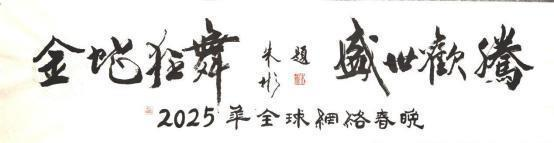 金蛇狂舞 朱彬 題 盛世歡騰
2025年全球網絡春晚